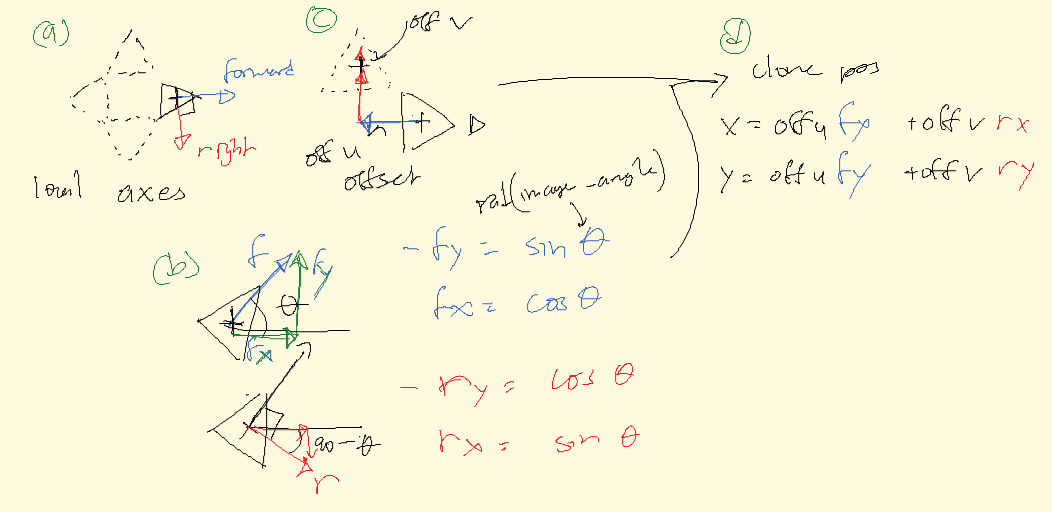 (a)
forward
right
local axes
(c)
off v
off u
offset
(d)
clone pos
x = off u fx + off v rx
y = off u fy + off v ry
rad(image_angle)
(b)
f
fy
θ
fx
- fy = sin θ
fx = cos θ
90 - θ
r
- ry = cos θ
rx = sin θ